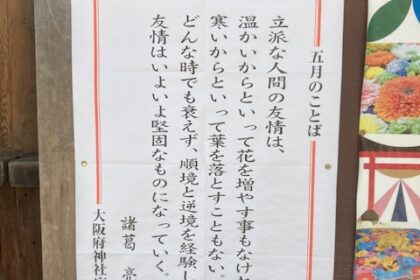 五月のことば
立派な人間の友情は、
温かいからといって花を増やす事もなけ
寒いからといって葉を落とすこともない。
どんな時でも衰えず、順境と逆境を経験し
友情はいよいよ堅固なものになっていく。
諸葛
大阪府神社